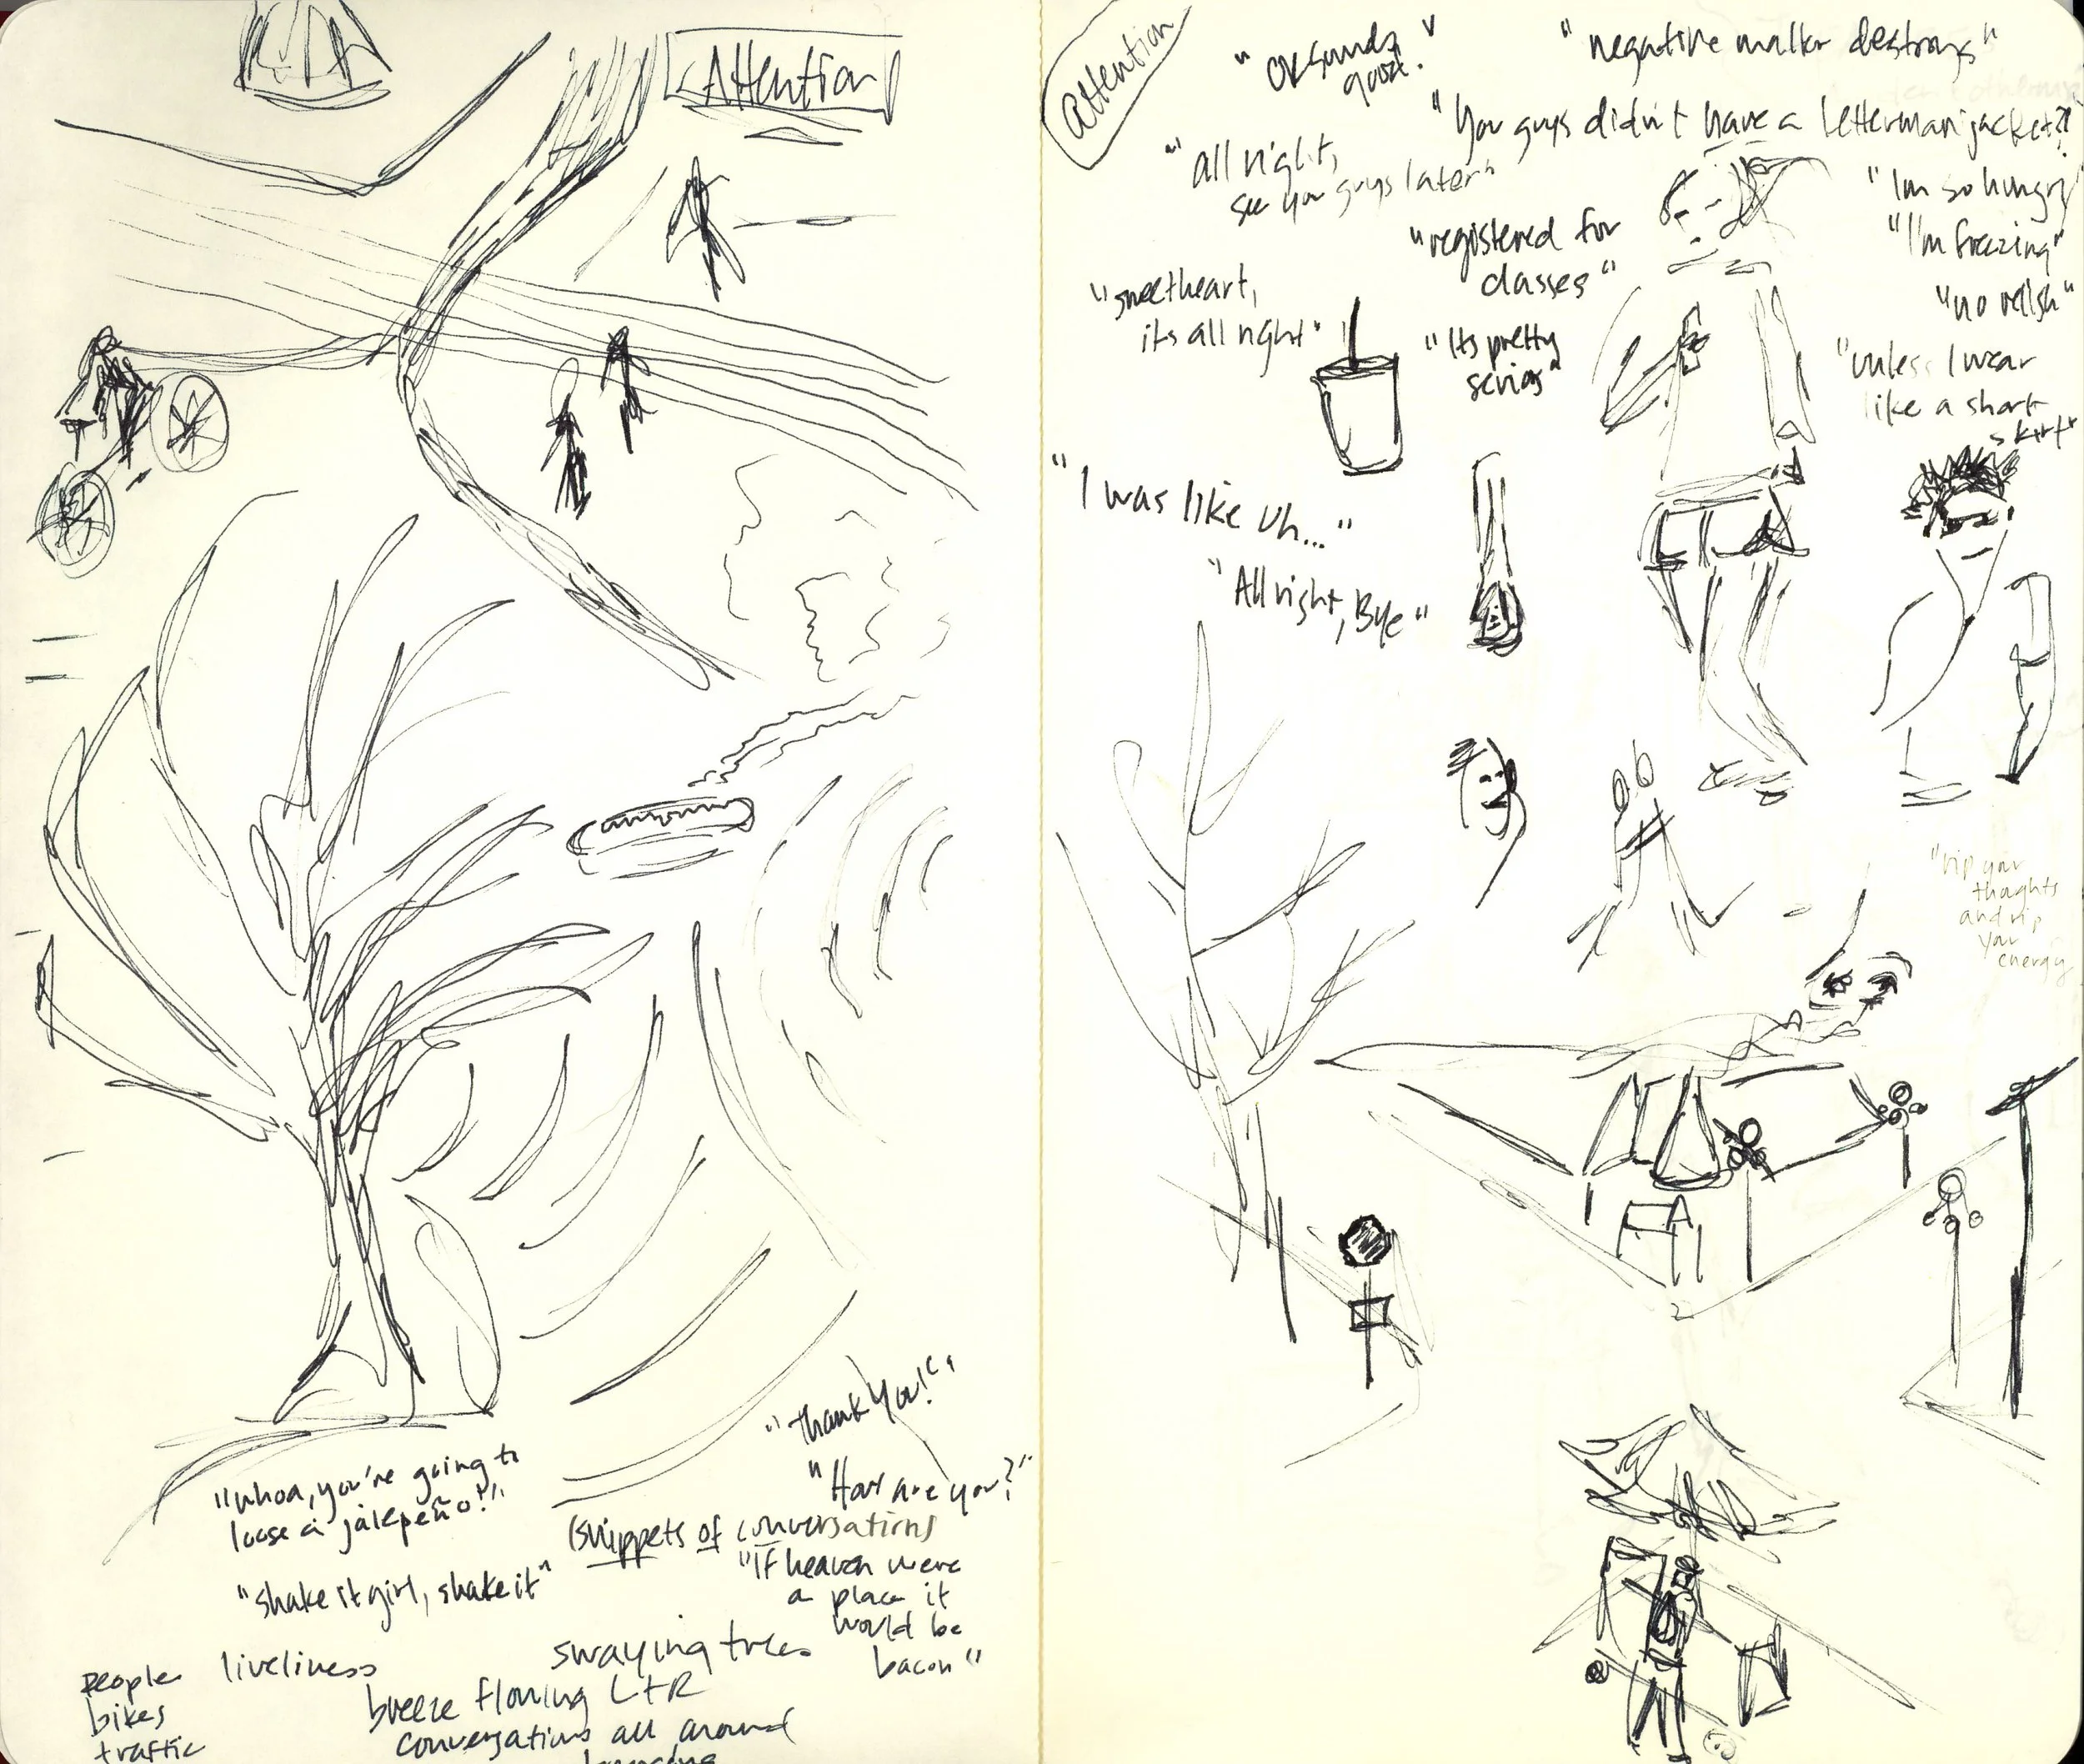 Attention
"whoa, you're going to
loose a jalepeño!"
"Thank you!"
"How are you?"
(snippets of conversations)
"shake it girl, shake it"
"If heaven were
a place it
would be
bacon"
swaying trees
people
bikes
traffic
liveliness
breeze flowing L+R
conversations all around
bouncing
Attention
"OK sounds
good."
"negative matter destroys"
"You guys didn't have a letterman jacket?!"
"all right,
see you guys later"
"I'm so hungry"
"I'm freezing"
"no relish"
"registered for
classes"
"sweetheart,
its all right"
"Its pretty
serios"
"unless I wear
like a short
skirt"
"I was like uh..."
"All right, Bye"
"rip your
thoughts
and rip
your
energy